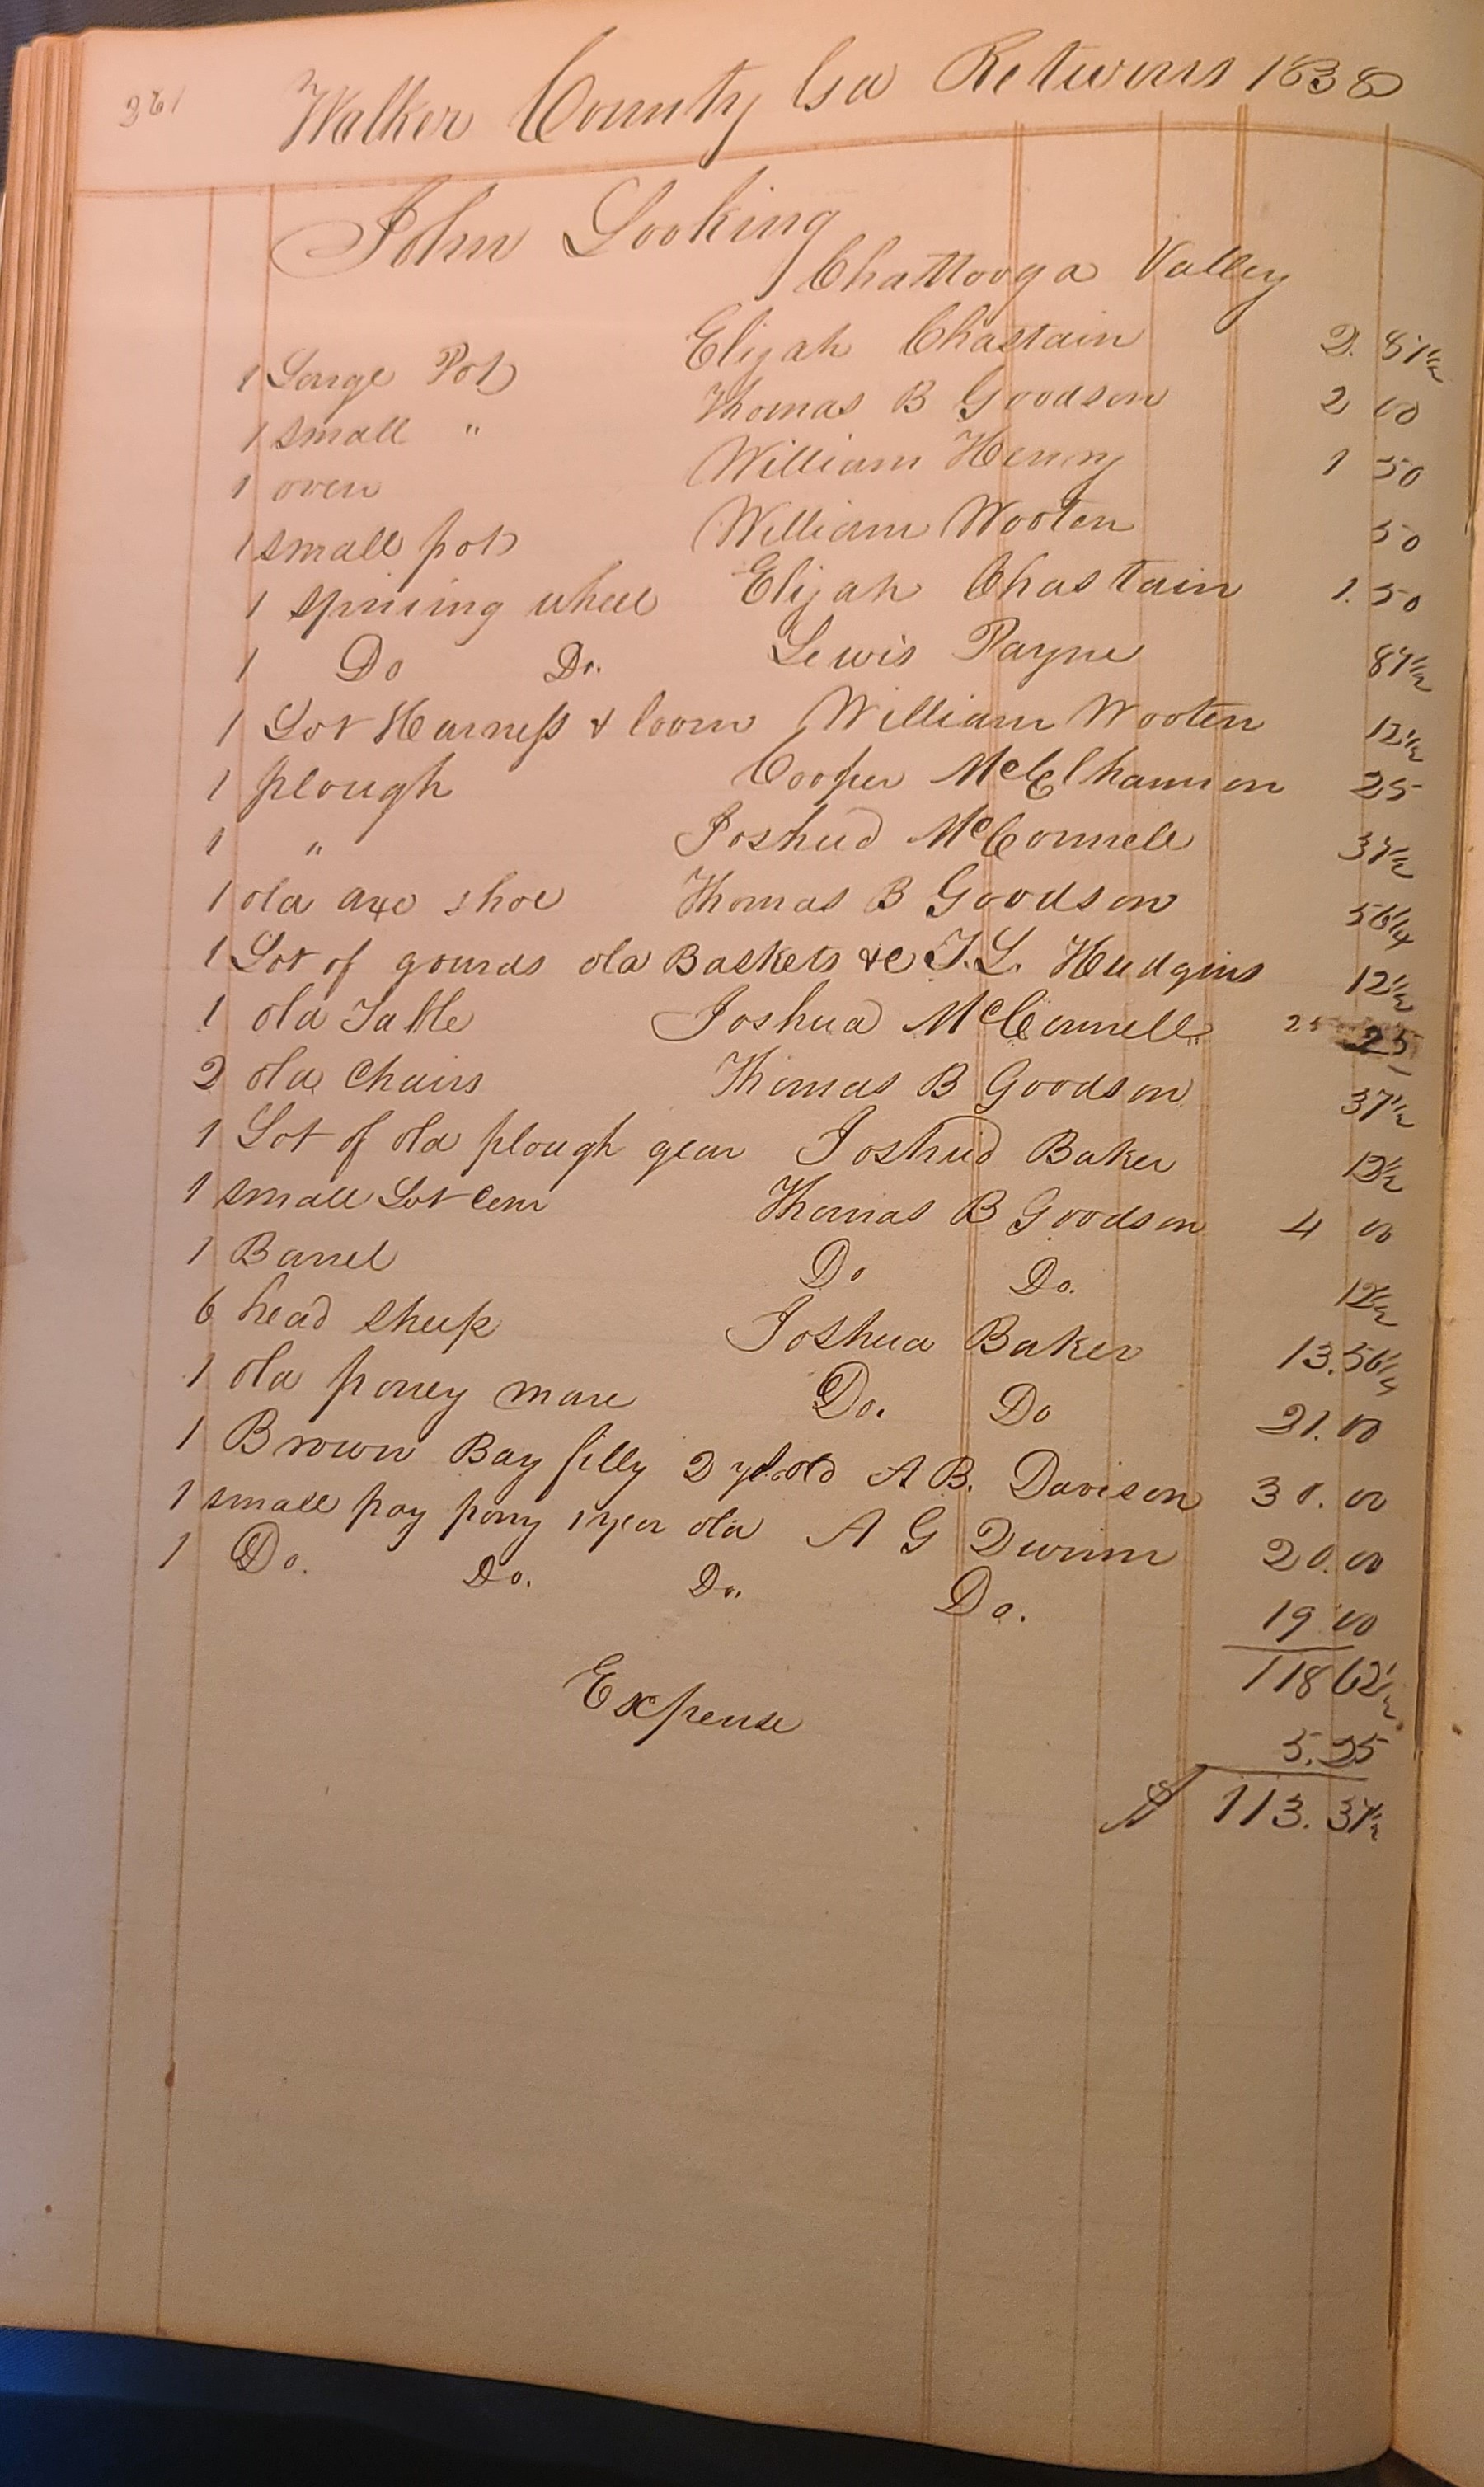 261
Walker County Ga Returns 1838
John Looking
Chattooga Valley
1 Large Pot Elijah Chastain 2. 87½
1 small " Thomas B Goodson 2 00
1 oven William Henry 1 50
1 small pot William Wooten 50
1 spining wheel Elijah Chastain 1.50
1 Do Do. Lewis Payne 87½
1 Lot Harness & loom William Wooten 12½
1 plough Cooper McElhannon 25
1 " Joshua McConnell 37½
1 old axe & hoe Thomas B Goodson 56¼
1 Lot of gourds old Baskets &c T.L. Hudgins 12½
1 old Table Joshua McConnell 25 25
2 old Chairs Thomas B Goodson 37½
1 Lot of old plough gear Joshua Baker 12½
1 small Lot Corn Thomas B Goodson 4 00
1 Barrel Do Do. 12½
6 head sheep Joshua Baker 13.56¼
1 old poney mare Do. Do 21.00
1 Brown Bay filly 2 old A B. Davison 30.00
1 small pay pony 1 year old A G 20.00
1 Do. Do. Do. Do. 19 00
118 62½
Expense 5.25
$ 113.37½